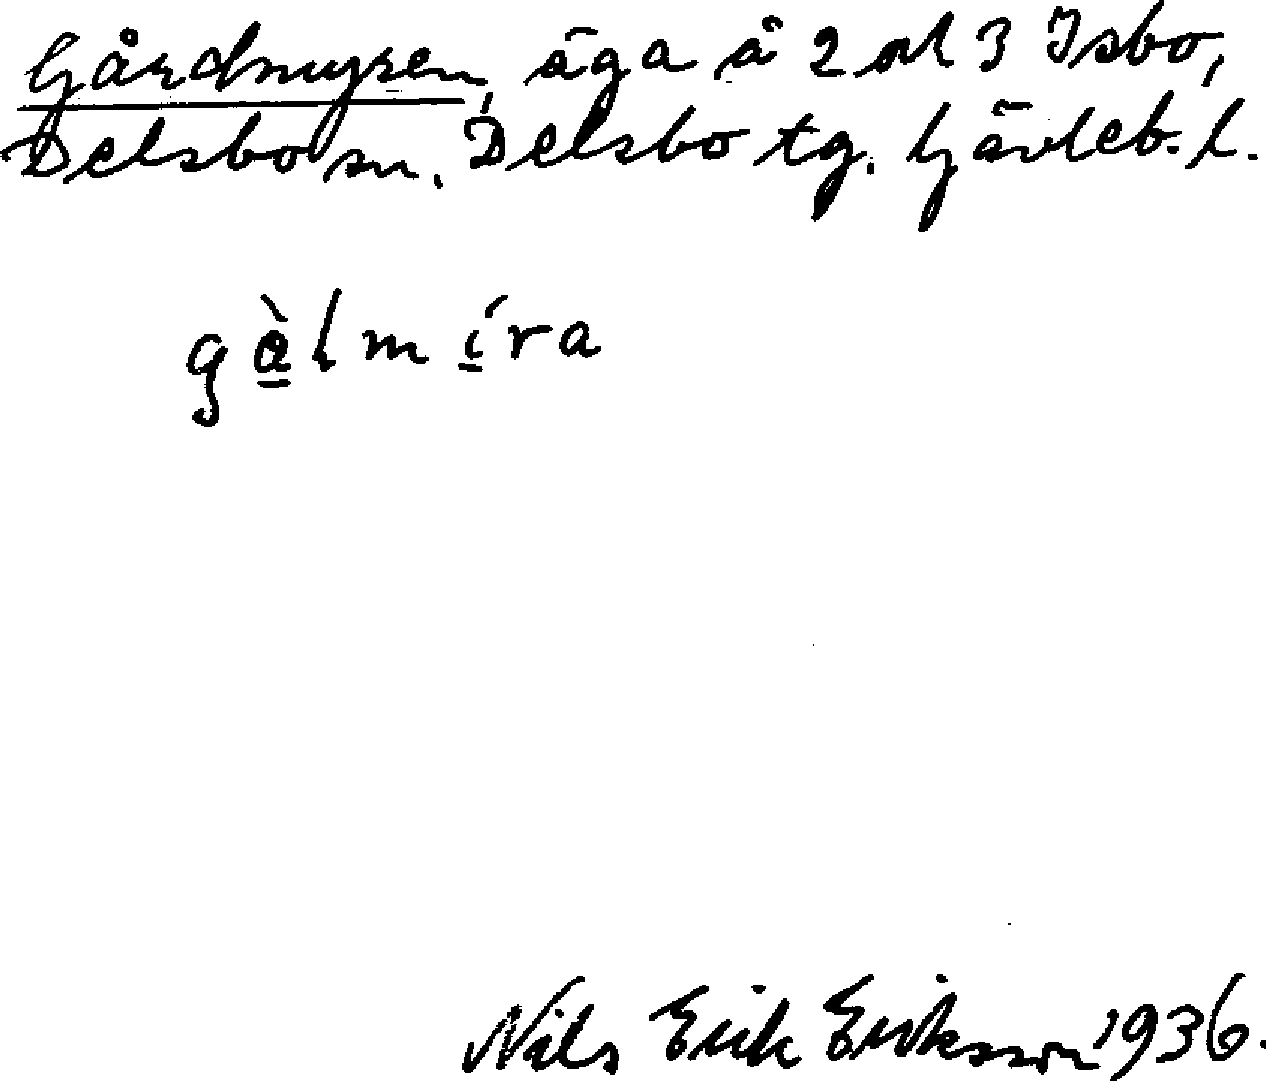 Gårdmyren, äga å 2 och 3 Isbo,
Delsbo sn. Delsbo tg. Gävleb. l.
gàlmíra
Nils Erik Eriksson 1936.